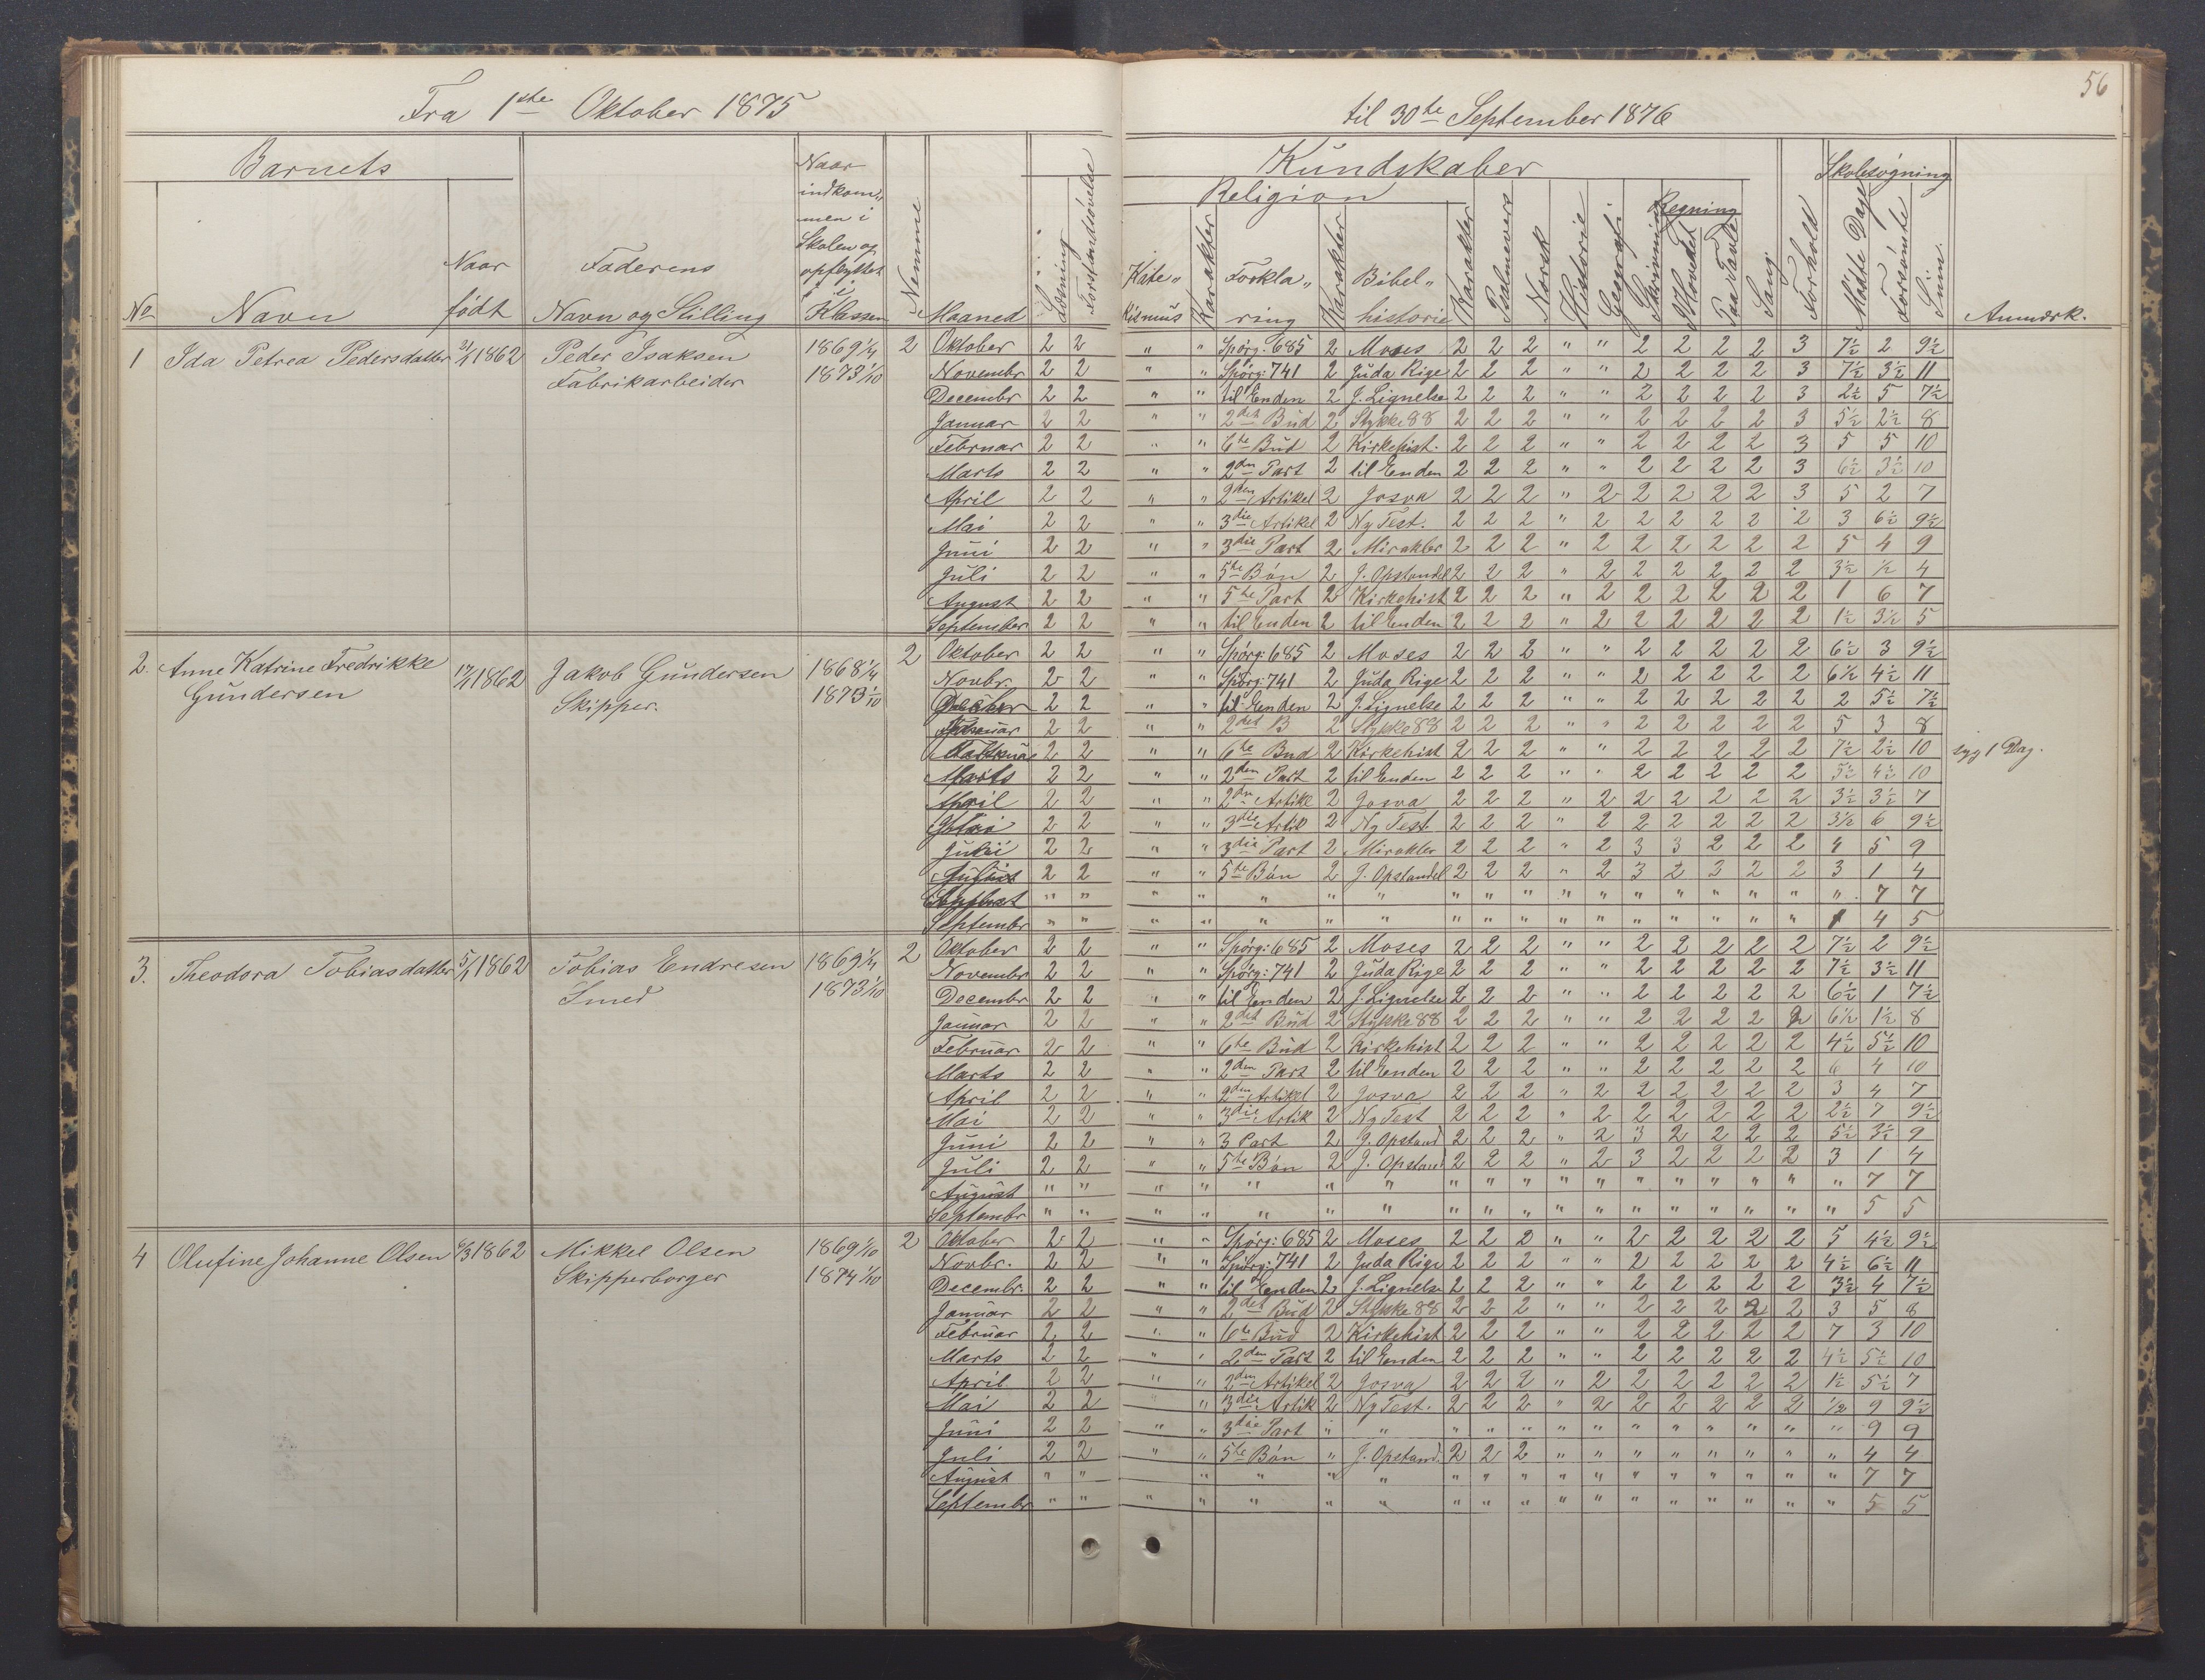 56
Fra 1ste Oktober 1875 til 30te September 1876
Barnets
Kundskaber
Skolesøgning
Religion
Regning
No
Navn
Naar født
Faderens
Navn og Stilling
Naar
indkom„
men i
Skolen og
opflyttet
i
Klassen
Nemme
Maaned
Læsning
Forstandsøvelse
Kate„
kismus
Karakter
Forkla„
ring
Karakter
Bibel„
historie
Karakter
Psalmevers
Norsk
Historie
Geografi
Skrivning
I Hovedet
Paa Tavle
Sang
Forhold
Mødte Dage
Forsømte
Sum
Anmærk.
1 Ida Petrea Pedersdatter 1862 Peder Isaksen 1869 1/4 2 Oktober 2 2 " " Spörg: 685 2 Moses 2 2 2 " " 2 2 2 2 3 7½ 2 9½
Fabrikarbeider 1873 1/10 Novembr 2 2 " " Spörg: 741 2 Juda Rige 2 2 2 " " 2 2 2 2 3 7½ 3½ 11
Decembr 2 2 " " til Enden 2 J. Lignelse 2 2 2 " " 2 2 2 2 3 2½ 5 7½
Januar 2 2 " " 2det Bud 2 Stykke 88 2 2 2 " " 2 2 2 2 3 5½ 2½ 8
Februar 2 2 " " 6te Bud 2 Kirkehist. 2 2 2 " " 2 2 2 2 3 5 5 10
Marts 2 2 " " 2den Part 2 til Enden 2 2 2 " " 2 2 2 2 3 6½ 3½ 10
April 2 2 " " 2den Artikel 2 Josva 2 2 2 " 2 2 2 2 2 3 5 2 7
Mai 2 2 " " 3die Artikel 2 Ny Test. 2 2 2 " 2 2 2 2 2 2 3 6½ 9½
Juni 2 2 " " 3die Part 2 Mirakler 2 2 2 " 2 2 2 2 2 2 5 4 9
Juli 2 2 " " 5te Bön 2 J. Opstandel 2 2 2 " 2 2 2 2 2 2 3½ ½ 4
August 2 2 " " 5te Part 2 Kirkehist 2 2 2 " 2 2 2 2 2 2 1 6 7
September 2 2 " " til Enden 2 til Enden 2 2 2 " 2 2 2 2 2 2 1½ 3½ 5
2. Anne Katrine Fredrikke 1862 Jakob Gundersen 1868 1/4 2 Oktober 2 2 " " Spörg: 685 2 Moses 2 2 2 " " 2 2 2 2 2 6½ 3 9½
Gundersen Skipper. 1873 1/10 Novbr. 2 2 " " Spörg: 741 2 Juda Rige 2 2 2 " " 2 2 2 2 2 6½ 4½ 11
2 2 " " til Enden 2 J. Lignelse 2 2 2 " " 2 2 2 2 2 2 5½ 7½
2 2 " " 2det B 2 Stykke 88 2 2 2 " " 2 2 2 2 2 5 3 8
2 2 " " 6te Bud 2 Kirkehist 2 2 2 " " 2 2 2 2 2 7½ 2½ 10 syg 1 Dag.
Marts 2 2 " " 2den Part 2 til Enden 2 2 2 " " 2 2 2 2 2 5½ 4½ 10
April 2 2 " " 2den Artike 2 Josva 2 2 2 " 2 2 2 2 2 2 3½ 3½ 7
Mai 2 2 " " 3die Artik 2 Ny Test. 2 2 2 " 2 2 2 2 2 2 3½ 6 9½
2 2 " " 3die Part 2 Mirakler 2 2 2 " 2 3 3 2 2 2 4 5 9
2 2 " " 5te Bön 2 J. Opstandel 2 2 2 " 2 3 2 3 2 2 3 1 4
" " " " " " " " " " " " " " " " " " 7 7
Septembr " " " " " " " " " " " " " " " " " 4 5
3. Theodora Tobiasdatter 5/1 1862 Tobias Endresen 1869 1/4 2 Oktober 2 2 " " Spörg: 685 2 Moses 2 2 2 " " 2 2 2 2 2 7½ 2 9½
Smed 1873 1/10 Novembr 2 2 " " Spörg: 741 2 Juda Rige 2 2 2 " " 2 2 2 2 2 7½ 3½ 11
Decembr 2 2 " " til Enden 2 J. Lignelse 2 2 2 " " 2 2 2 2 2 6½ 1 7½
Januar 2 2 " " 2det Bud 2 Stykke 88 2 2 2 " " 2 2 2 2 2 6½ 1½ 8
Februar 2 2 " " 6te Bud 2 Kirkehist 2 2 2 " " 2 2 2 2 2 4½ 5½ 10
Marts 2 2 " " 2den Part 2 til Enden 2 2 2 " " 2 2 2 2 2 6 4 10
April 2 2 " " 2den Artikel 2 Josva 2 2 2 " 2 2 2 2 2 2 3 4 7
Mai 2 2 " " 3die Artik 2 Ny Test 2 2 2 " 2 2 2 2 2 2 2½ 7 9½
Juni 2 2 " " 3 Part 2 J. Opstand 2 2 2 " 2 3 2 2 2 2 5½ 3½ 9
Juli 2 2 " " 5te Bön 2 J. Opstand 2 2 2 " 2 3 2 2 2 2 3 1 4
August " " " " " " " " " " " " " " " " " " " 7 7
Septembr " " " " " " " " " " " " " " " " " " 5 5
4 Olufine Johanne Olsen 6/3 1862 Mikkel Olsen 1869 1/10 2 Oktober 2 2 " " Spörg: 685 2 Moses 2 2 2 " " 2 2 2 2 2 5 4½ 9½
Skipperborger 1874 1/10 Novbr. 2 2 " " Spörg: 741 2 Juda Rige 2 2 2 " " 2 2 2 2 2 4½ 6½ 11
Decembr. 2 2 " " til Enden 2 J. Lignelse 2 2 2 " " 2 2 2 2 2 3½ 4 7½
Januar 2 2 " " 2det Bud 2 Stykke 88 2 2 2 " " 2 2 2 2 2 3 5 8
Februar 2 2 " " 6te Bud 2 Kirkehist 2 2 2 " " 2 2 2 2 2 7 3 10
Marts 2 2 " " 2den Part 2 til Enden 2 2 2 " " 2 2 2 2 2 4½ 5½ 10
April 2 2 " " 2den Artikel 2 Josva 2 2 2 " 2 2 2 2 2 2 1½ 5½ 7
Mai 2 2 " " 3die Artik 2 Ny Test. 2 2 2 " 2 2 2 2 2 2 ½ 9 9½
Juni 2 2 " " 3die Part " " " " " " " " " " " " " 9 9
Juli 2 2 " " 5te Bön " J. Opstand. 2 2 2 " " " " " " " " 4 4
August " " " " " " " " " " " " " " " " " 7 7
Septembr " " " " " " " " " " " " " " " " " " 5 5